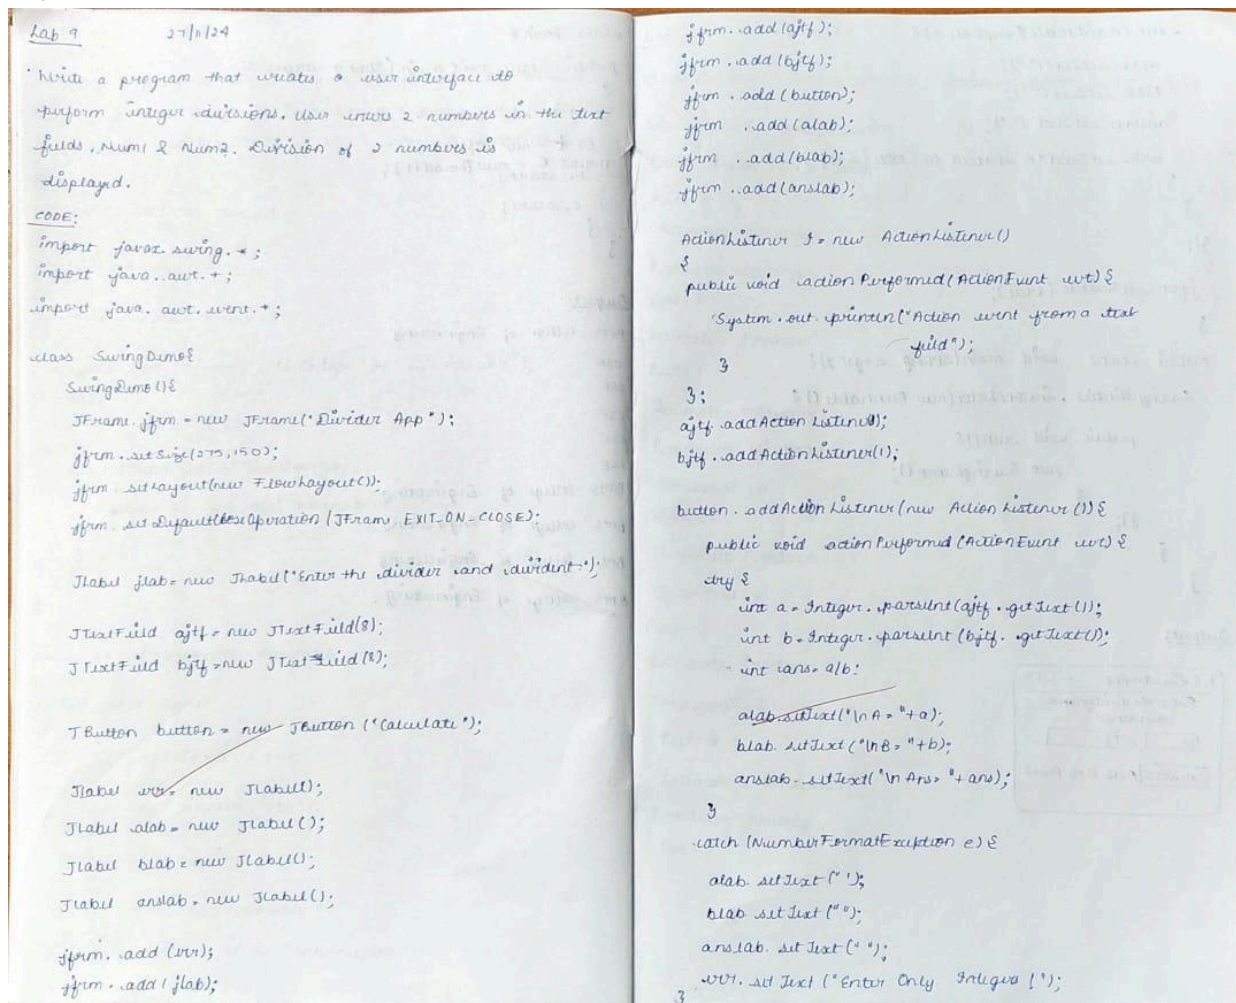 Lab 9 27/11/24
Write a program that creates a user interface to
perform integer divisions. User enters 2 numbers in the text
fields, Num1 & Num2. Division of 2 numbers is
displayed.
CODE:
import javax.swing.*;
import java.awt.*;
import java.awt.event.*;
class SwingDemo{
SwingDemo(){
JFrame jfrm = new JFrame("Divider App");
jfrm.setSize(275,150);
jfrm.setLayout(new FlowLayout());
jfrm.setDefaultCloseOperation(JFrame.EXIT_ON_CLOSE);
JLabel jlab = new JLabel("Enter the divider and divident:");
JTextField ajtf = new JTextField(8);
JTextField bjtf = new JTextField(8);
JButton button = new JButton("Calculate");
JLabel err = new JLabel();
JLabel alab = new JLabel();
JLabel blab = new JLabel();
JLabel anslab = new JLabel();
jfrm.add(err);
jfrm.add(jlab);
jfrm.add(ajtf);
jfrm.add(bjtf);
jfrm.add(button);
jfrm.add(alab);
jfrm.add(blab);
jfrm.add(anslab);
ActionListener l = new ActionListener()
{
public void actionPerformed(ActionEvent evt){
System.out.println("Action event from a text
field");
}
};
ajtf.addActionListener(l);
bjtf.addActionListener(l);
button.addActionListener(new ActionListener()){
public void actionPerformed(ActionEvent evt){
try {
int a = Integer.parseInt(ajtf.getText());
int b = Integer.parseInt(bjtf.getText());
int ans = a/b;
alab.setText("\nA = "+a);
blab.setText("\nB = "+b);
anslab.setText("\n Ans = "+ans);
}
catch (NumberFormatException e){
alab.setText("");
blab.setText("");
anslab.setText("");
err.setText("Enter Only Integers!");
}